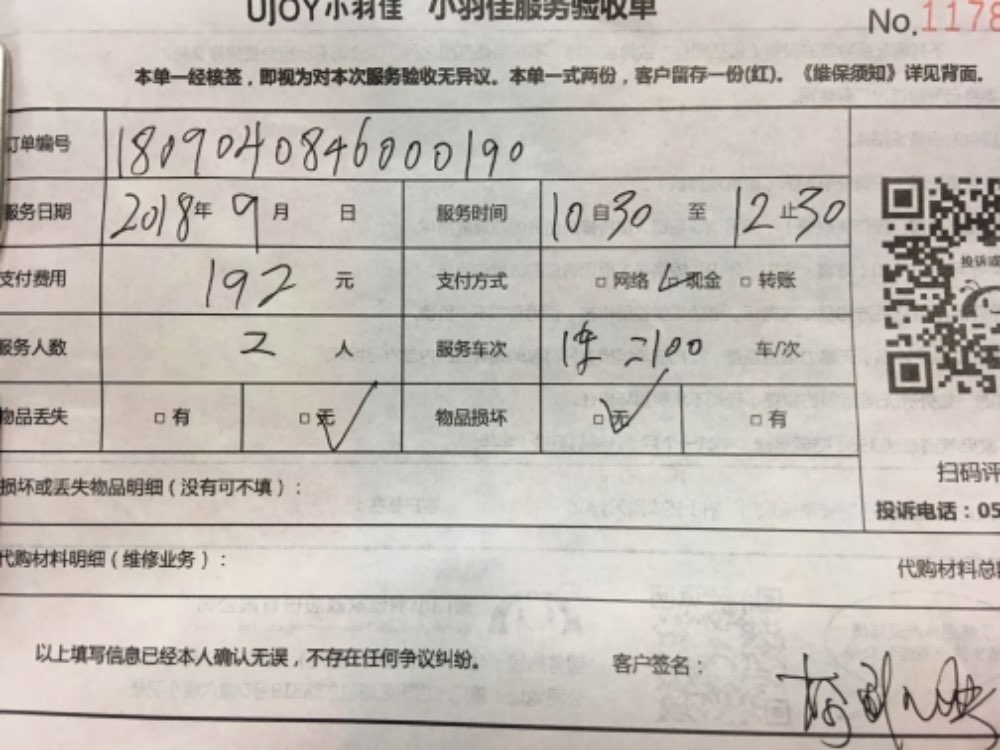 UJOY小羽佳 小羽佳服务验收单
No.1178
本单一经核签，即视为对本次服务验收无异议。本单一式两份，客户留存一份(红)。《维保须知》详见背面。
订单编号 1809040846000190
服务日期 2018年 9月 日 服务时间 10自30 至 12止30
支付费用 192 元 支付方式 □网络 □现金 □转账
服务人数 2 人 服务车次 车/次
物品丢失 □有 □无 物品损坏 □无 □有
损坏或丢失物品明细（没有可不填）：
扫码评
投诉电话：05
代购材料明细（维修业务）：
代购材料总额
以上填写信息已经本人确认无误，不存在任何争议纠纷。 客户签名：